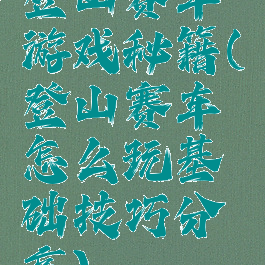 登山赛车
游戏秘籍(
登山赛车
怎么玩基
础技巧分
享)